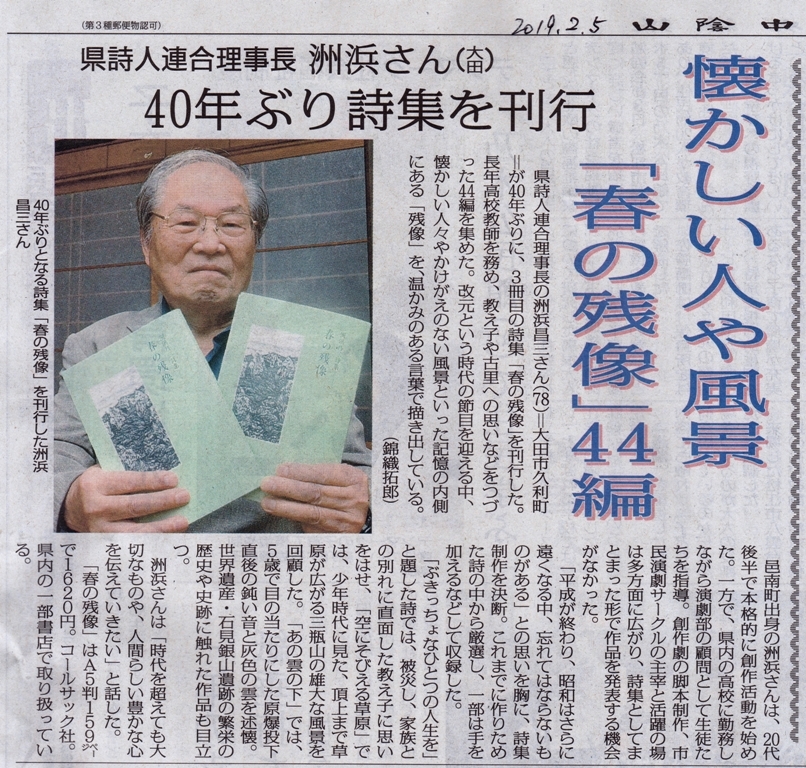 (第3種郵便物認可)
2019.2.5
山陰中
懐かしい人や風景
「春の残像」44編
県詩人連合理事長 洲浜さん(大田)
40年ぶり詩集を刊行
県詩人連合理事長の洲浜昌三さん(78)=大田市久利町
=が40年ぶりに、3冊目の詩集「春の残像」を刊行した。
長年高校教師を務め、教え子や古里への思いなどをつづ
った44編を集めた。改元という時代の節目を迎える中、
懐かしい人々やかけがえのない風景といった記憶の内側
にある「残像」を、温かみのある言葉で描き出している。
(錦織拓郎)
春の残像
春の残像
40年ぶりとなる詩集「春の残像」を刊行した洲浜
昌三さん
邑南町出身の洲浜さんは、20代
後半で本格的に創作活動を始め
た。一方で、県内の高校に勤務し
ながら演劇部の顧問として生徒た
ちを指導。創作劇の脚本制作、市
民演劇サークルの主宰と活躍の場
は多方面に広がり、詩集としてま
とまった形で作品を発表する機会
がなかった。
「平成が終わり、昭和はさらに
遠くなる中、忘れてはならないも
のがある」との思いを胸に、詩集
制作を決断。これまでに作りため
た詩の中から厳選し、一部は手を
加えるなどして収録した。
「ぶきっちょなひとつの人生を」
と題した詩では、被災し、家族と
の別れに直面した教え子に思い
をはせ、「空にそびえる草原」で
は、少年時代に見た、頂上まで草
原が広がる三瓶山の雄大な風景を
回顧した。「あの雲の下」では、
5歳で目の当たりにした原爆投下
直後の鈍い音と灰色の雲を述懐。
世界遺産・石見銀山遺跡の繁栄の
歴史や史跡に触れた作品も目立
つ。
洲浜さんは「時代を超えても大
切なものや、人間らしい豊かな心
を伝えていきたい」と話した。
「春の残像」はA5判159㌻
で1620円。コールサック社。
県内の一部書店で取り扱ってい
る。